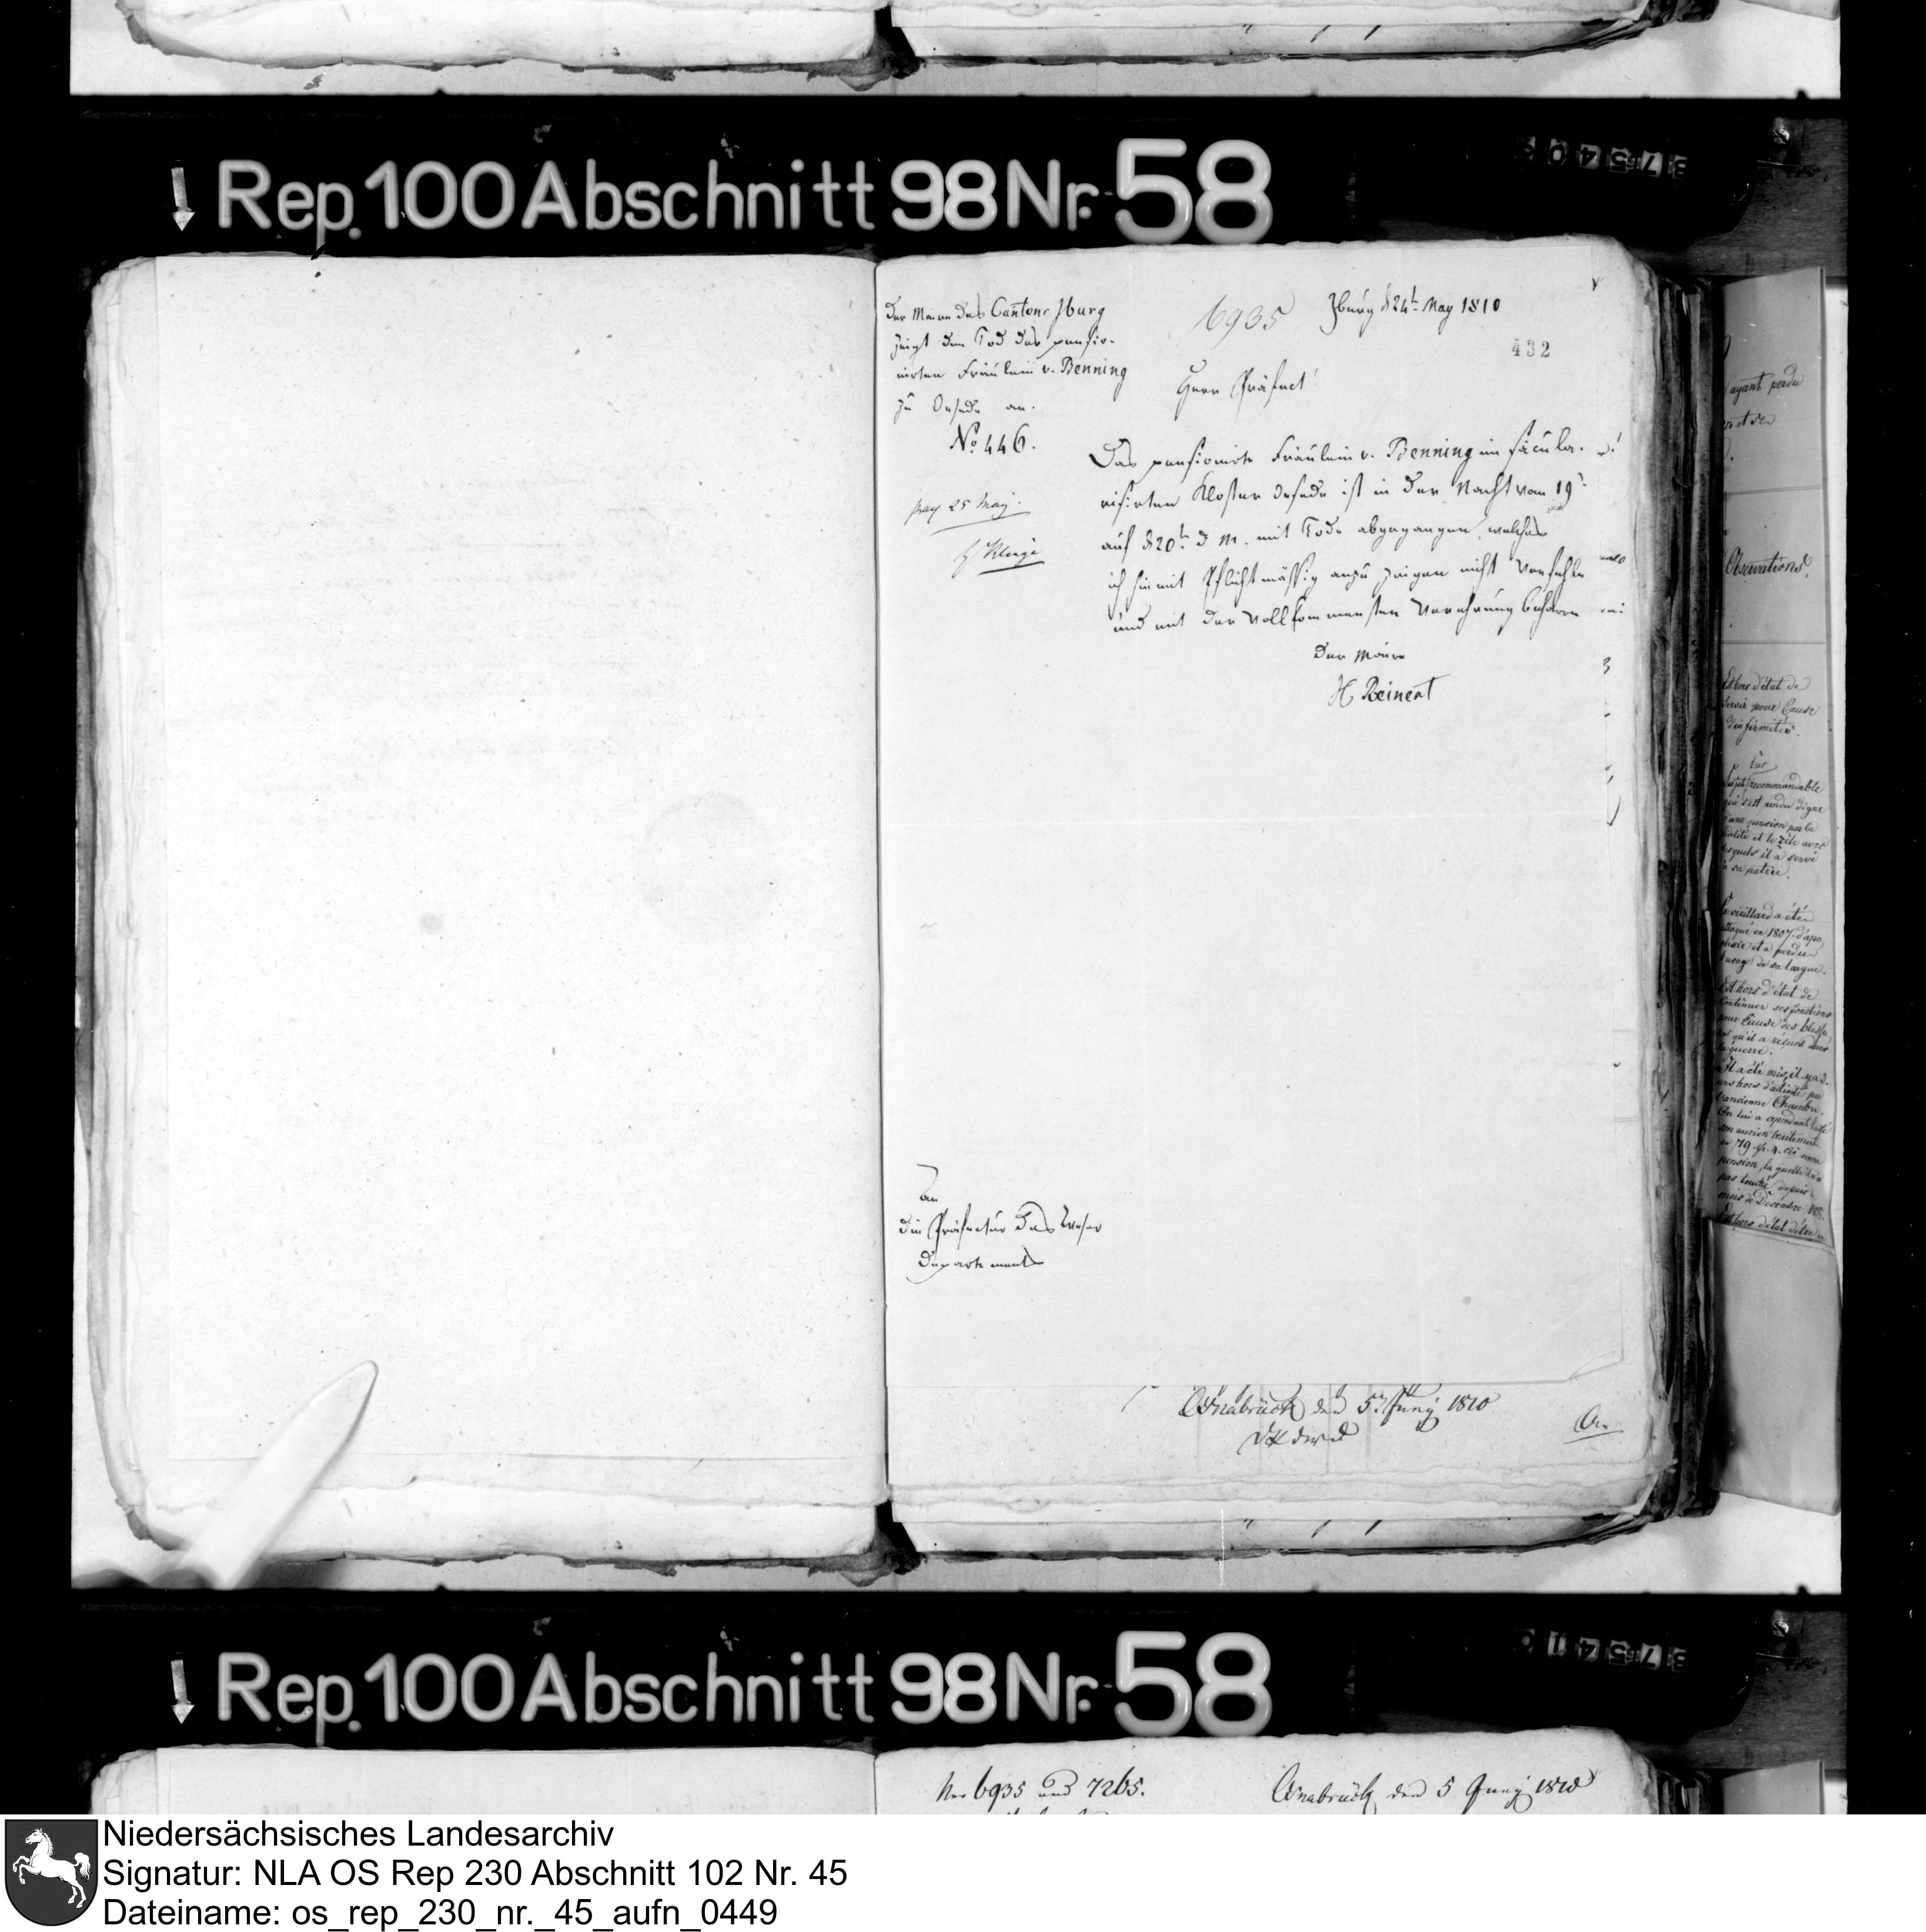 Rep. 100 Abschnitt 98 Nr. 58
Der Maire des Cantons Iburg
zeigt den Tod des pensio-
nirten Fräulein v. Benning
zu Oesede an.
No. 446.
6935
Iburg d 24t May 1810
432
Herr Präfect!
Das pensionirte Fräulein v. Benning im säcula-
risirten Kloster Oesede ist in der Nacht vom 19t
auf d 20t d M. mit Tode abgegangen, welches
ich hiemit Pflichtmässig anzu zeigen nicht Verfehle
und mit der Vollkommensten Verehrung beharre
Der Maire
H Reinert
25 May.
An
die Präfectur des Weser
Departements
Osnabrück den 5t Juny 1810
ayant perdu
Observations.
Est hors d'état de
servir pour Cause
d'infirmités.
Sujet recommandable
qui s'est rendu digne
d'une pension par la
fidélité et le zèle avec
lesquels il a servi
sa patrie.
vieillard a été
attaqué en 1807 d'apo
plexie et a perdu
l'usage de sa langue.
Est hors d'état de
Continuer ses fonctions
pour Cause des bless
qu'il a reçues dans
la guerre.
Il a été mis, il y a 2
ans hors d'activité par
l'ancienne Chambre.
On lui a cependant
son ancien traitement
pension, la quelle
depuis
mois de Décembre
Est hors d'état d'être
Rep. 100 Abschnitt 98 Nr. 58
Nro 6935 und 7265.
Osnabrück den 5 Juny 1810
Niedersächsisches Landesarchiv
Signatur: NLA OS Rep 230 Abschnitt 102 Nr. 45
Dateiname: os_rep_230_nr._45_aufn_0449